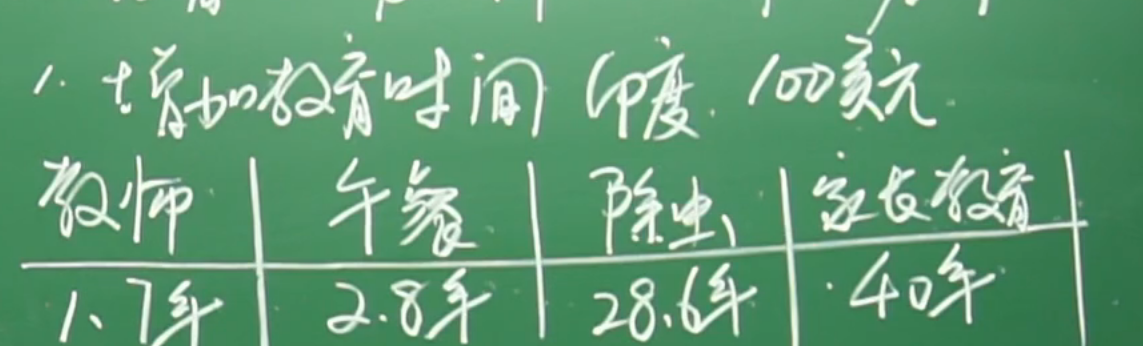 1. 增加教育时间 印度. 100美元
教师 午餐 除虫 家长教育
1.7年 2.8年 28.6年 40年